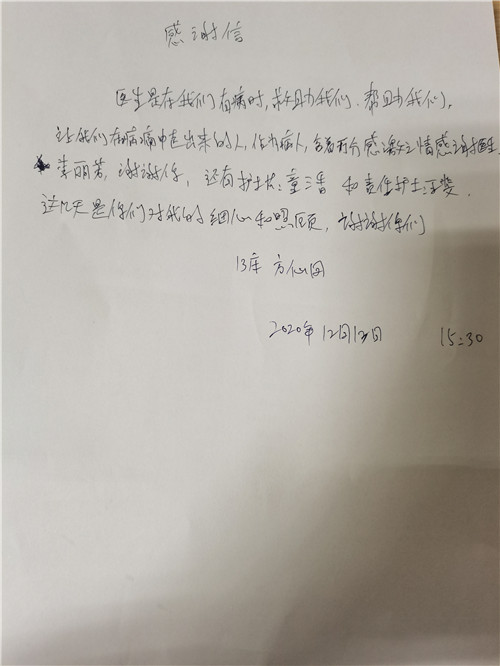 感谢信
医生是在我们有病时,救助我们、帮助我们,
让我们在病痛中走出来的人,作为病人,含着万分感激之情感谢医生
李丽芳,谢谢你,还有护士长:童三香 和责任护士:汪斐.
这几天是你们对我的细心和照顾,谢谢你们
13床 方仙
2020年12月13日 15:30